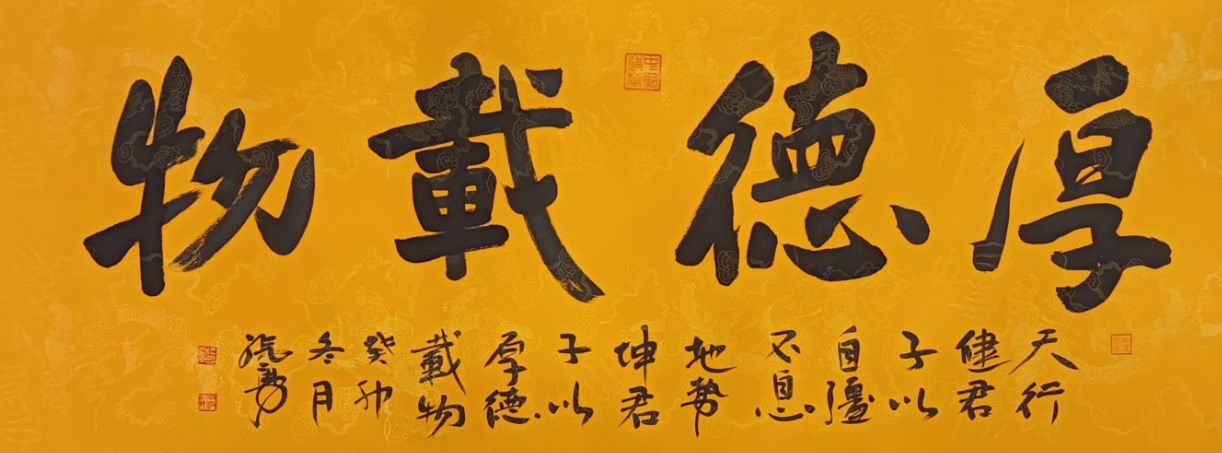 厚德載物
天行
健君
子以
自彊
不息
地势
坤君
子以
厚德
載物
癸卯
冬月